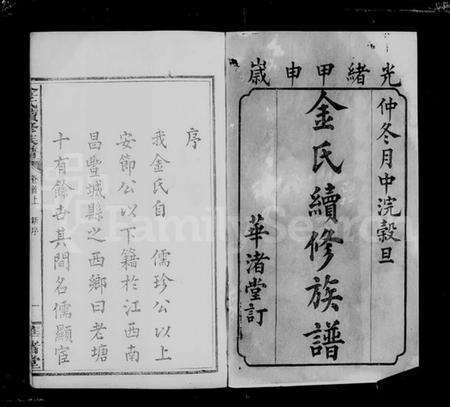 光緒甲申歲
仲冬月中浣穀旦
金氏續修族譜
華渚堂訂
序
我金氏自 儒珍公以上
安節公以下籍於江西南
昌豐城縣之西鄉曰老塘
十有餘世其間名儒顯宦
金氏續修族譜
卷首上 新序
一
華渚堂
FamilySearch